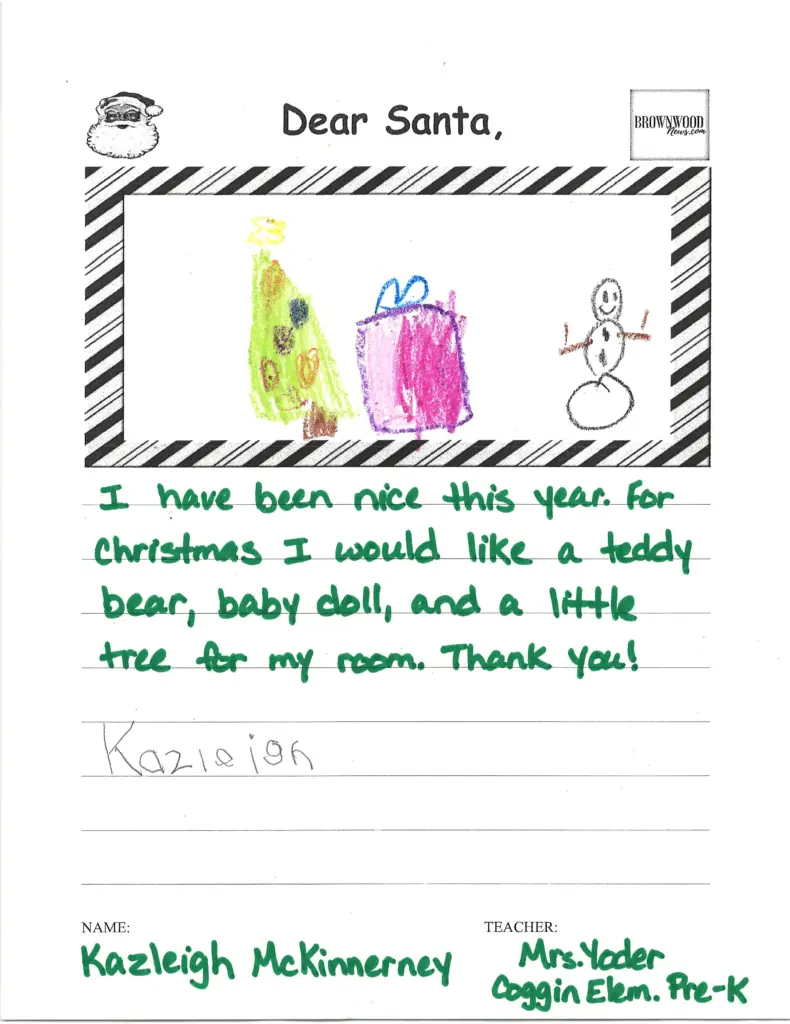 Dear Santa,
BROWNWOOD
News.com
I have been nice this year. For
Christmas I would like a teddy
bear, baby doll, and a little
tree for my room. Thank you!
Kazleigh
NAME:
TEACHER:
Kazleigh McKinnerney
Mrs. Yoder
Coggin Elem. Pre-K